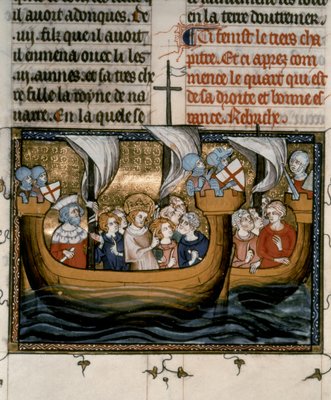 il auoit adonques. De
filz que il auoit
il enmena ouec li les
ainnes. et sa tres che
re fille la royne de na
uarre. En la quele se
en la terre doutremer.
Ci fenist le tiers cha
pitre. Et ci apres com
mence le quart qui est
de sa droite et bonne
Rebriche.